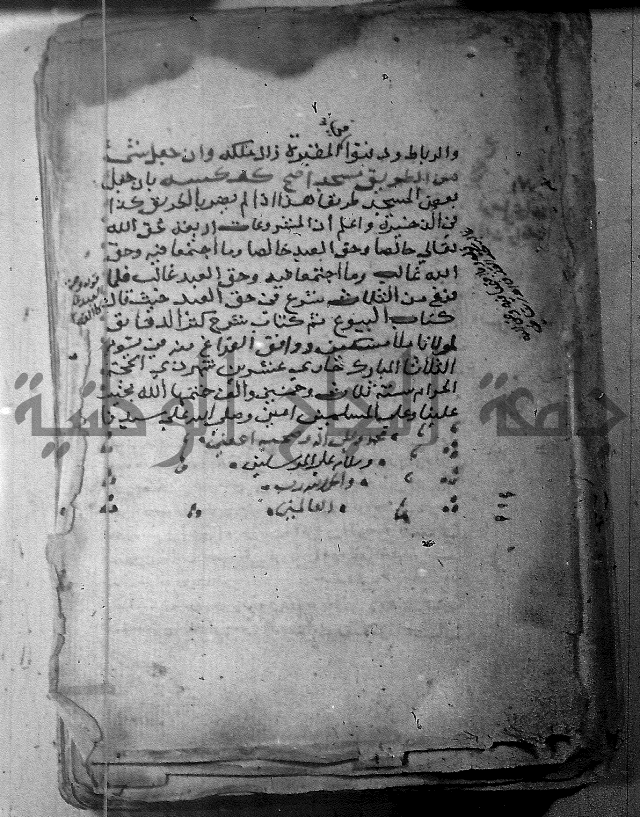 والرباط ولم يبنوا المقبرة زال ملكه وان جعل شئ
من الطريق مسجدا صح كعكسه بان جعل
بعض المسجد طريقا هذا اذا لم يضر بالطريق كذا
في الذخيرة واعلم ان المشروعات اربعة حق الله
تعالى خالصا وحق العبد خالصا وما اجتمعا فيه وحق
الله غالب وما اجتمعا فيه وحق العبد غالب فلما
فرغ من الثلاث شرع في حق العبد حيث قال
كتاب البيوع تم كتاب شرح كنز الدقائق
لمولانا ملا مسكين ووافق الفراغ منه في يوم
الثلاثا المبارك حادي عشرين شهر ذي الحجة
الحرام سنة ثلاث وخمسين والف ختمها الله بخير
علينا وعلى المسلمين امين وصلى الله على سيدنا
محمد وعلى اله وصحبه اجمعين
وسلام على المرسلين
والحمد لله رب
العالمين
جامعة النجاح الوطنية